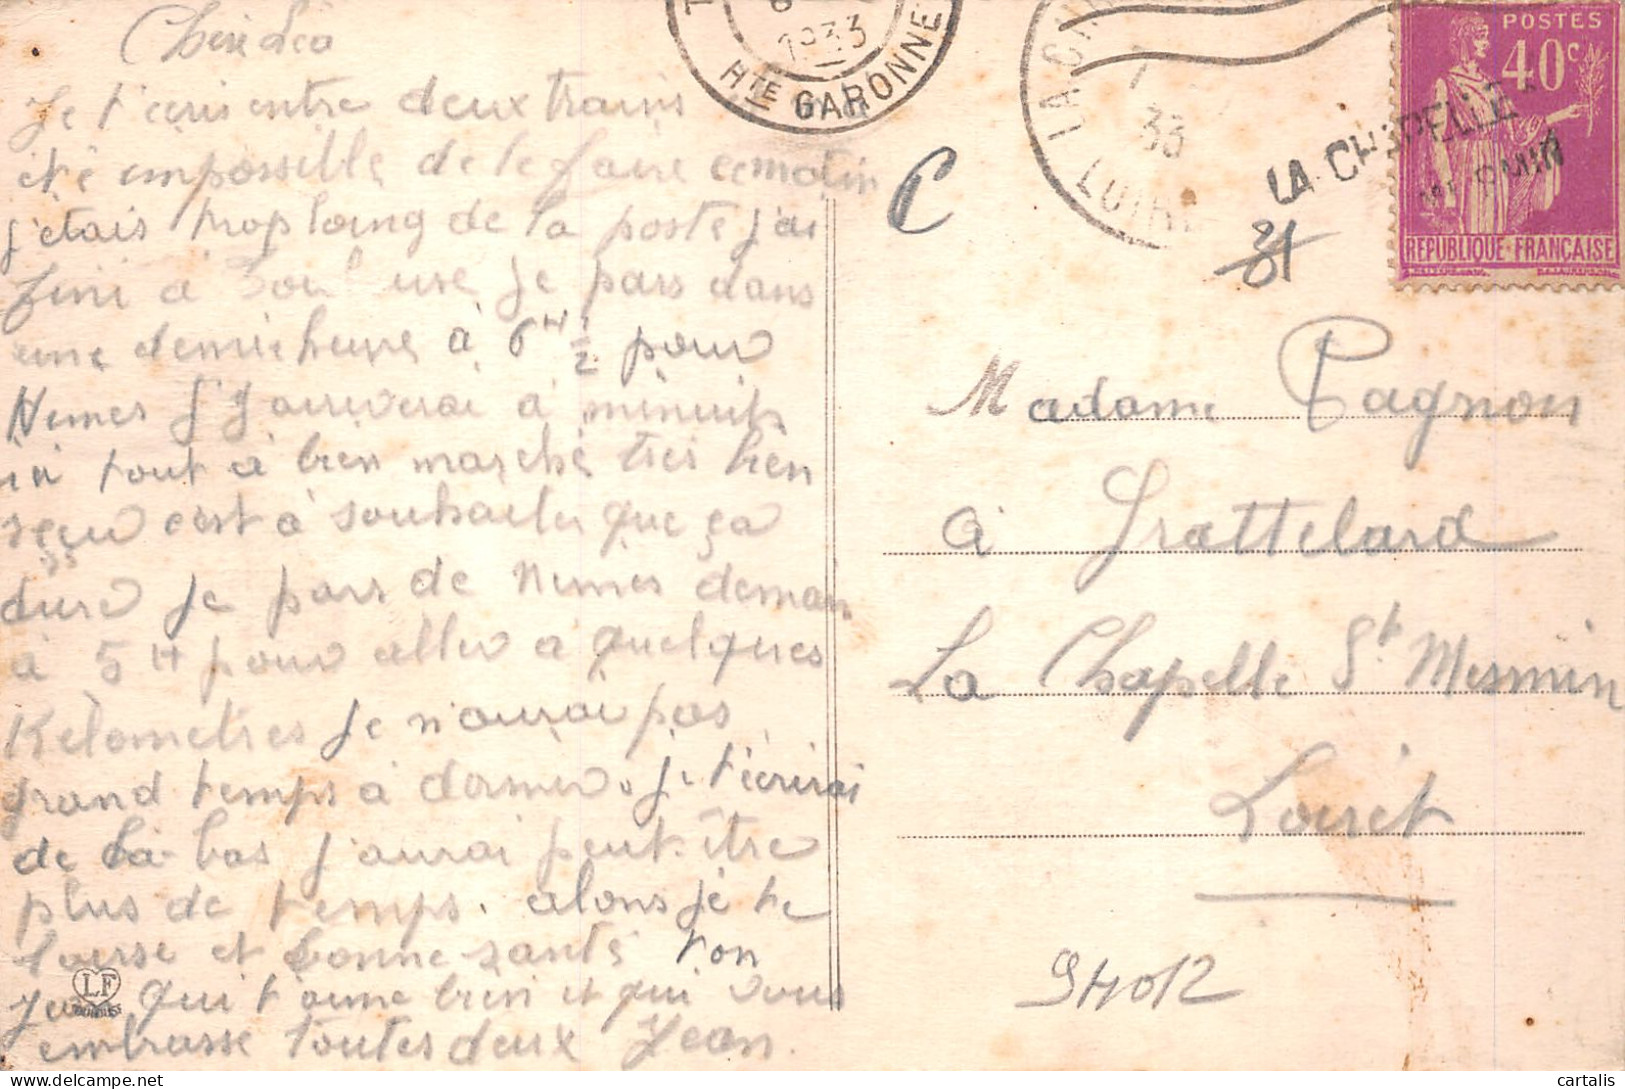 Chère Léo
Je t'écris entre deux trains
été impossible de le faire ce matin
j'étais trop loing de la poste j'ai
fini à je pars dans
une demie heure à 6H 1/2 pour
Nimes j'y arriverai à minuits
ici tout à bien marché très bien
reçu c'est à souhaiter que ça
dure je pars de Nimes demain
à 5H pour aller à quelques
Kelomètres je n'aurai pas
grand temps à dormir. je t'écrirai
de la bas j'aurai peut-être
plus de temps. alons je te
laisse et bonne santé ton
Jean qui t'aime bien et qui vous
embrasse toutes deux Jean.
LF
1933
HTE GARONNE
33
LOIRET
LA CHAPELLE
POSTES
40c
REPUBLIQUE FRANÇAISE
Madame Pagnon
à Grattelard
La Chapelle St Mesmin
Loiret
94012
cartalis